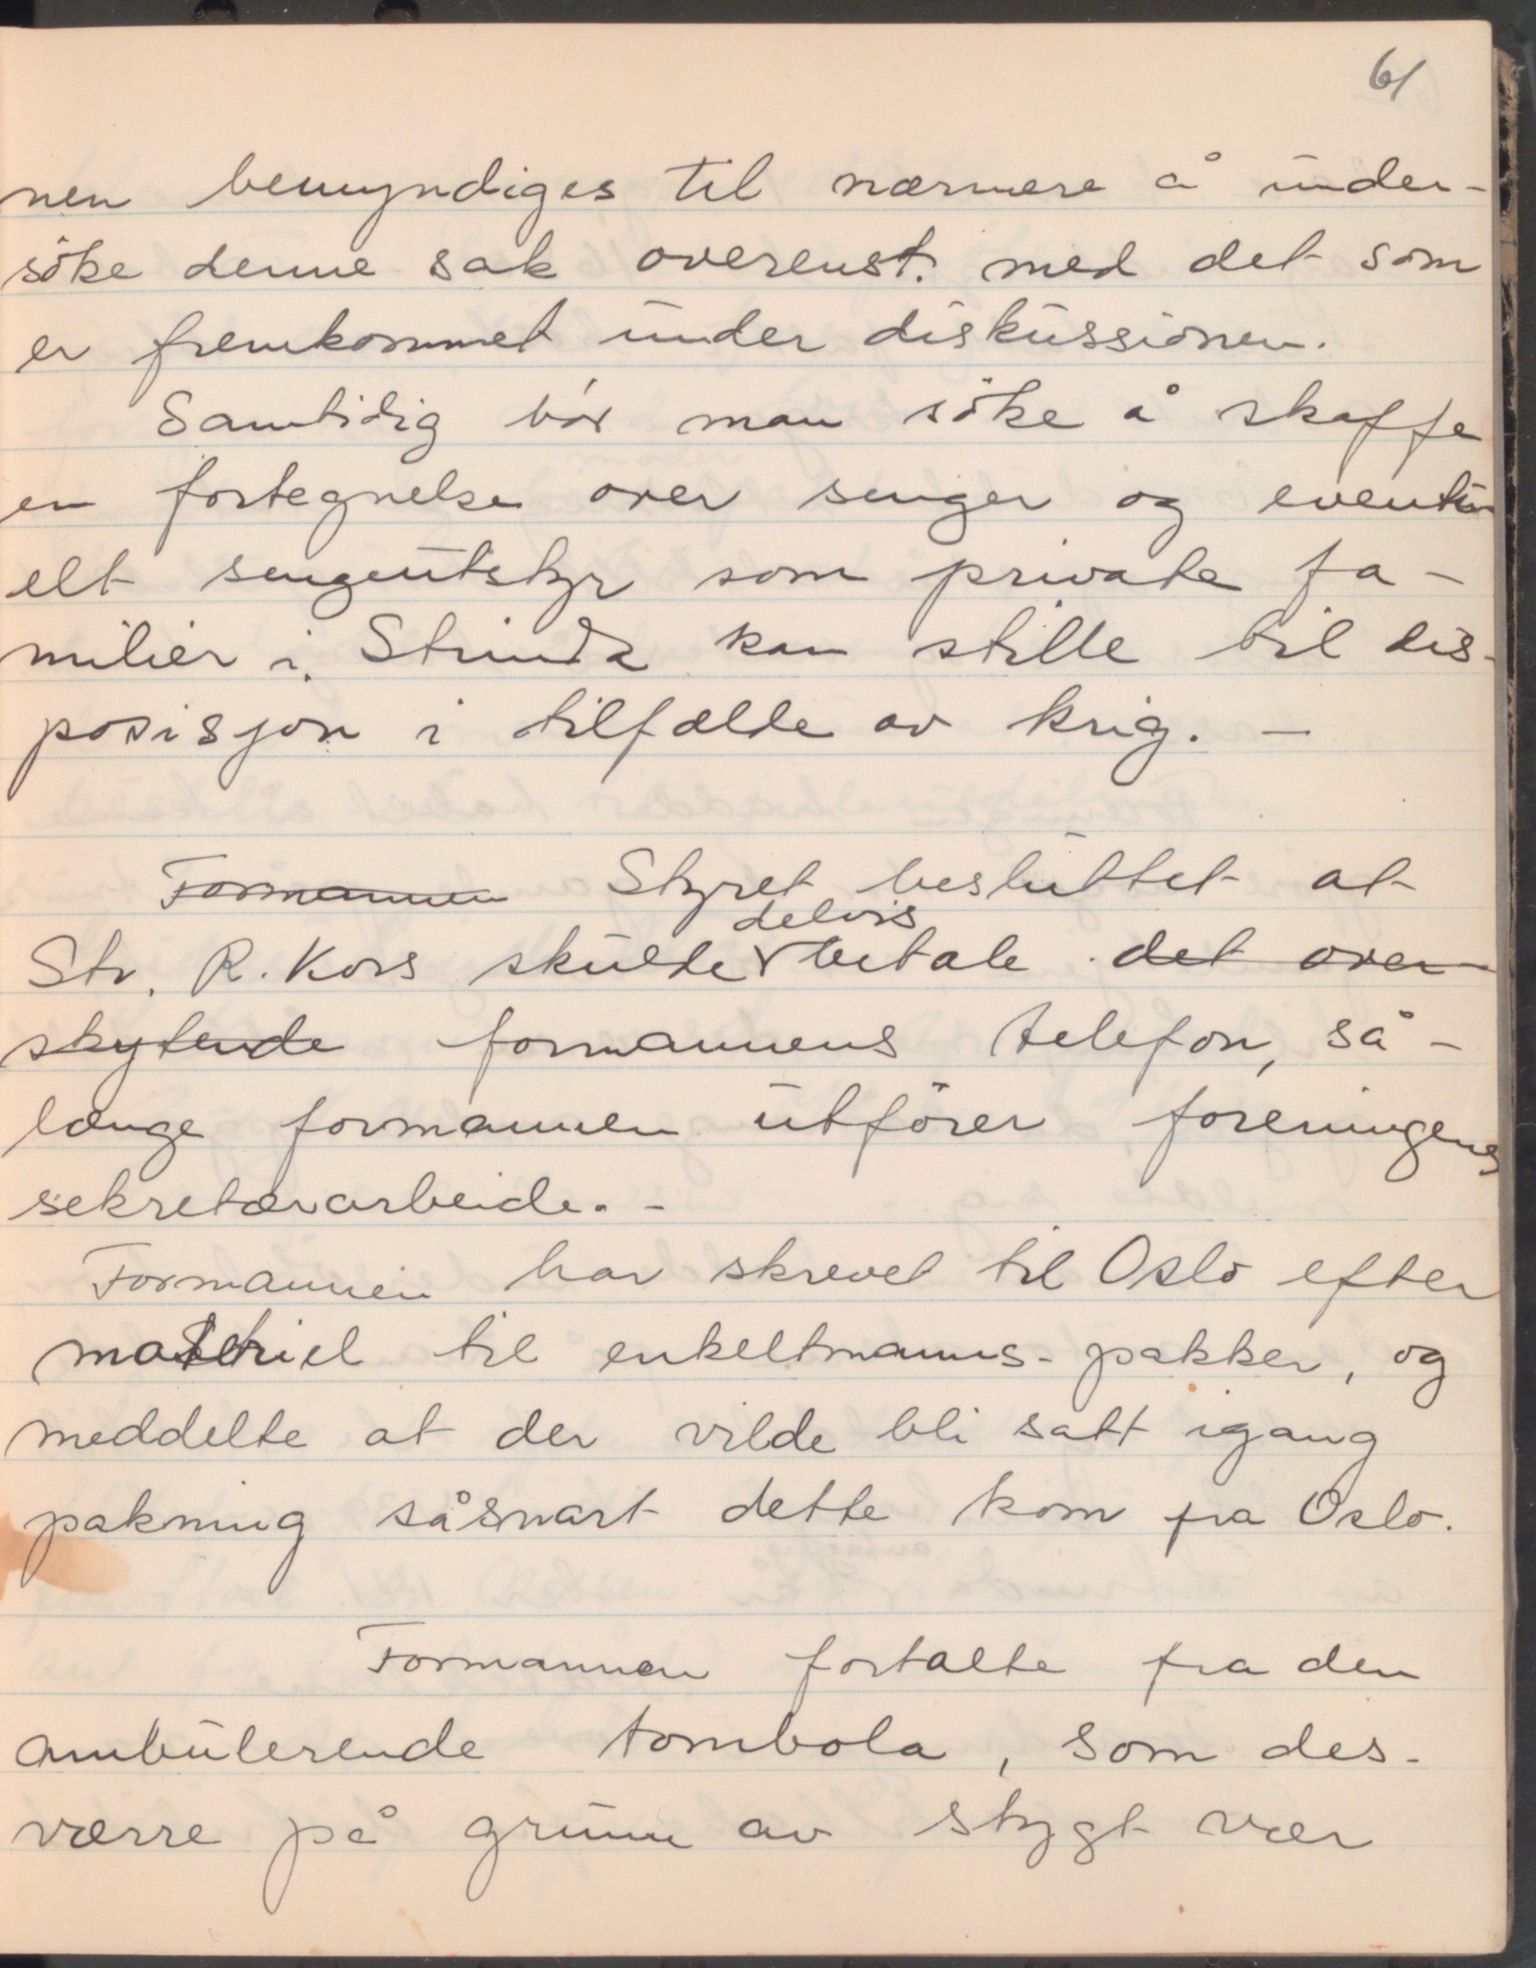 61
nen bemyndiges til nærmere å under-
söke denne sak overenst. med det som
er fremkommet under diskussionen.
Samtidig bör man söke å skaffe
en fortegnelse over senger og eventu
elt sengeutstyr som private fa-
milier i Strinda kan stille til dis-
posisjon i tilfælde av krig. -
Formannen Styret besluttet at
delvis
Str. R. Kors skulde betale det over-
skytende formannens telefon, så-
længe formannen utförer foreningens
sekretærarbeide. -
Formannen har skrevet til Oslo efter
materiel til enkeltmanns-pakker, og
meddelte at der vilde bli satt igang
pakning såsnart dette kom fra Oslo.
Formannen fortalte fra den
ambulerende tombola, som des-
værre på grunn av stygt vær